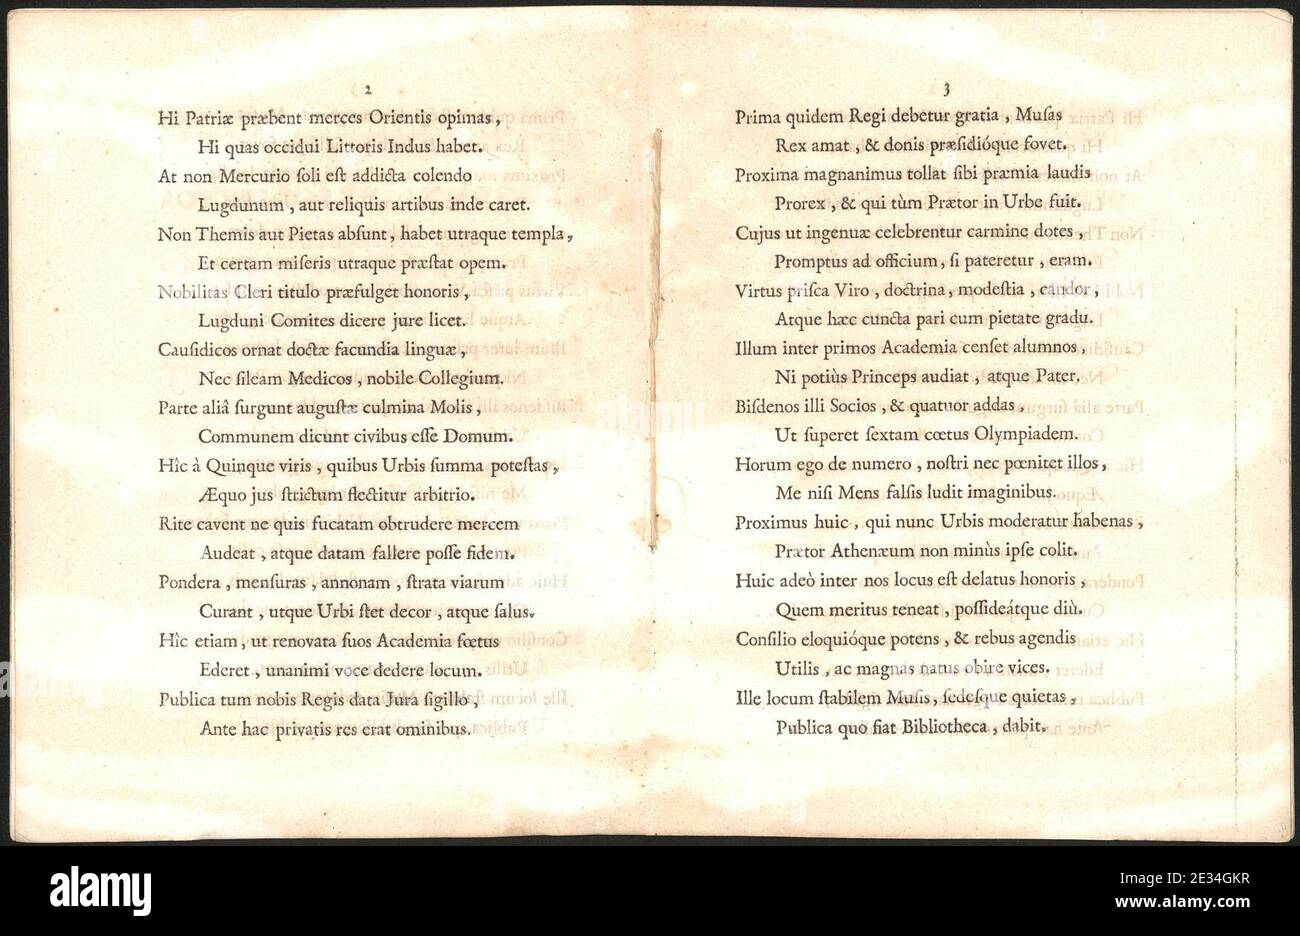 2
Hi Patriæ præbent merces Orientis opimas,
Hi quas occidui Littoris Indus habet.
At non Mercurio ſoli eſt addicta colendo
Lugdunum, aut reliquis artibus inde caret.
Non Themis aut Pietas abſunt, habet utraque templa,
Et certam miſeris utraque præſtat opem.
Nobilitas Cleri titulo præfulget honoris,
Lugduni Comites dicere jure licet.
Cauſidicos ornat doctæ facundia linguæ,
Nec ſileam Medicos, nobile Collegium.
Parte aliâ ſurgunt auguſtæ culmina Molis,
Communem dicunt civibus eſſe Domum.
Hîc à Quinque viris, quibus Urbis ſumma poteſtas,
Æquo jus ſtrictum flectitur arbitrio.
Rite cavent ne quis fucatam obtrudere mercem
Audeat, atque datam fallere poſſe fidem.
Pondera, menſuras, annonam, ſtrata viarum
Curant, utque Urbi ſtet decor, atque ſalus.
Hîc etiam, ut renovata ſuos Academia fœtus
Ederet, unanimi voce dedere locum.
Publica tum nobis Regis data Jura ſigillo,
Ante hac privatis res erat ominibus.
3
Prima quidem Regi debetur gratia, Muſas
Rex amat, & donis præſidióque fovet.
Proxima magnanimus tollat ſibi præmia laudis
Prorex, & qui tùm Prætor in Urbe fuit.
Cujus ut ingenuæ celebrentur carmine dotes,
Promptus ad officium, ſi pateretur, eram.
Virtus priſca Viro, doctrina, modeſtia, candor,
Atque hæc cuncta pari cum pietate gradu.
Illum inter primos Academia cenſet alumnos,
Ni potiùs Princeps audiat, atque Pater.
Biſdenos illi Socios, & quatuor addas,
Ut ſuperet ſextam cœtus Olympiadem.
Horum ego de numero, noſtri nec pœnitet illos,
Me niſi Mens falſis ludit imaginibus.
Proximus huic, qui nunc Urbis moderatur habenas,
Prætor Athenæum non minùs ipſe colit.
Huic adeò inter nos locus eſt delatus honoris,
Quem meritus teneat, poſſideátque diù.
Conſilio eloquióque potens, & rebus agendis
Utilis, ac magnas natus obire vices.
Ille locum ſtabilem Muſis, ſedeſque quietas,
Publica quo fiat Bibliotheca, dabit.
alamy
Image ID: 2E34GKR
www.alamy.com